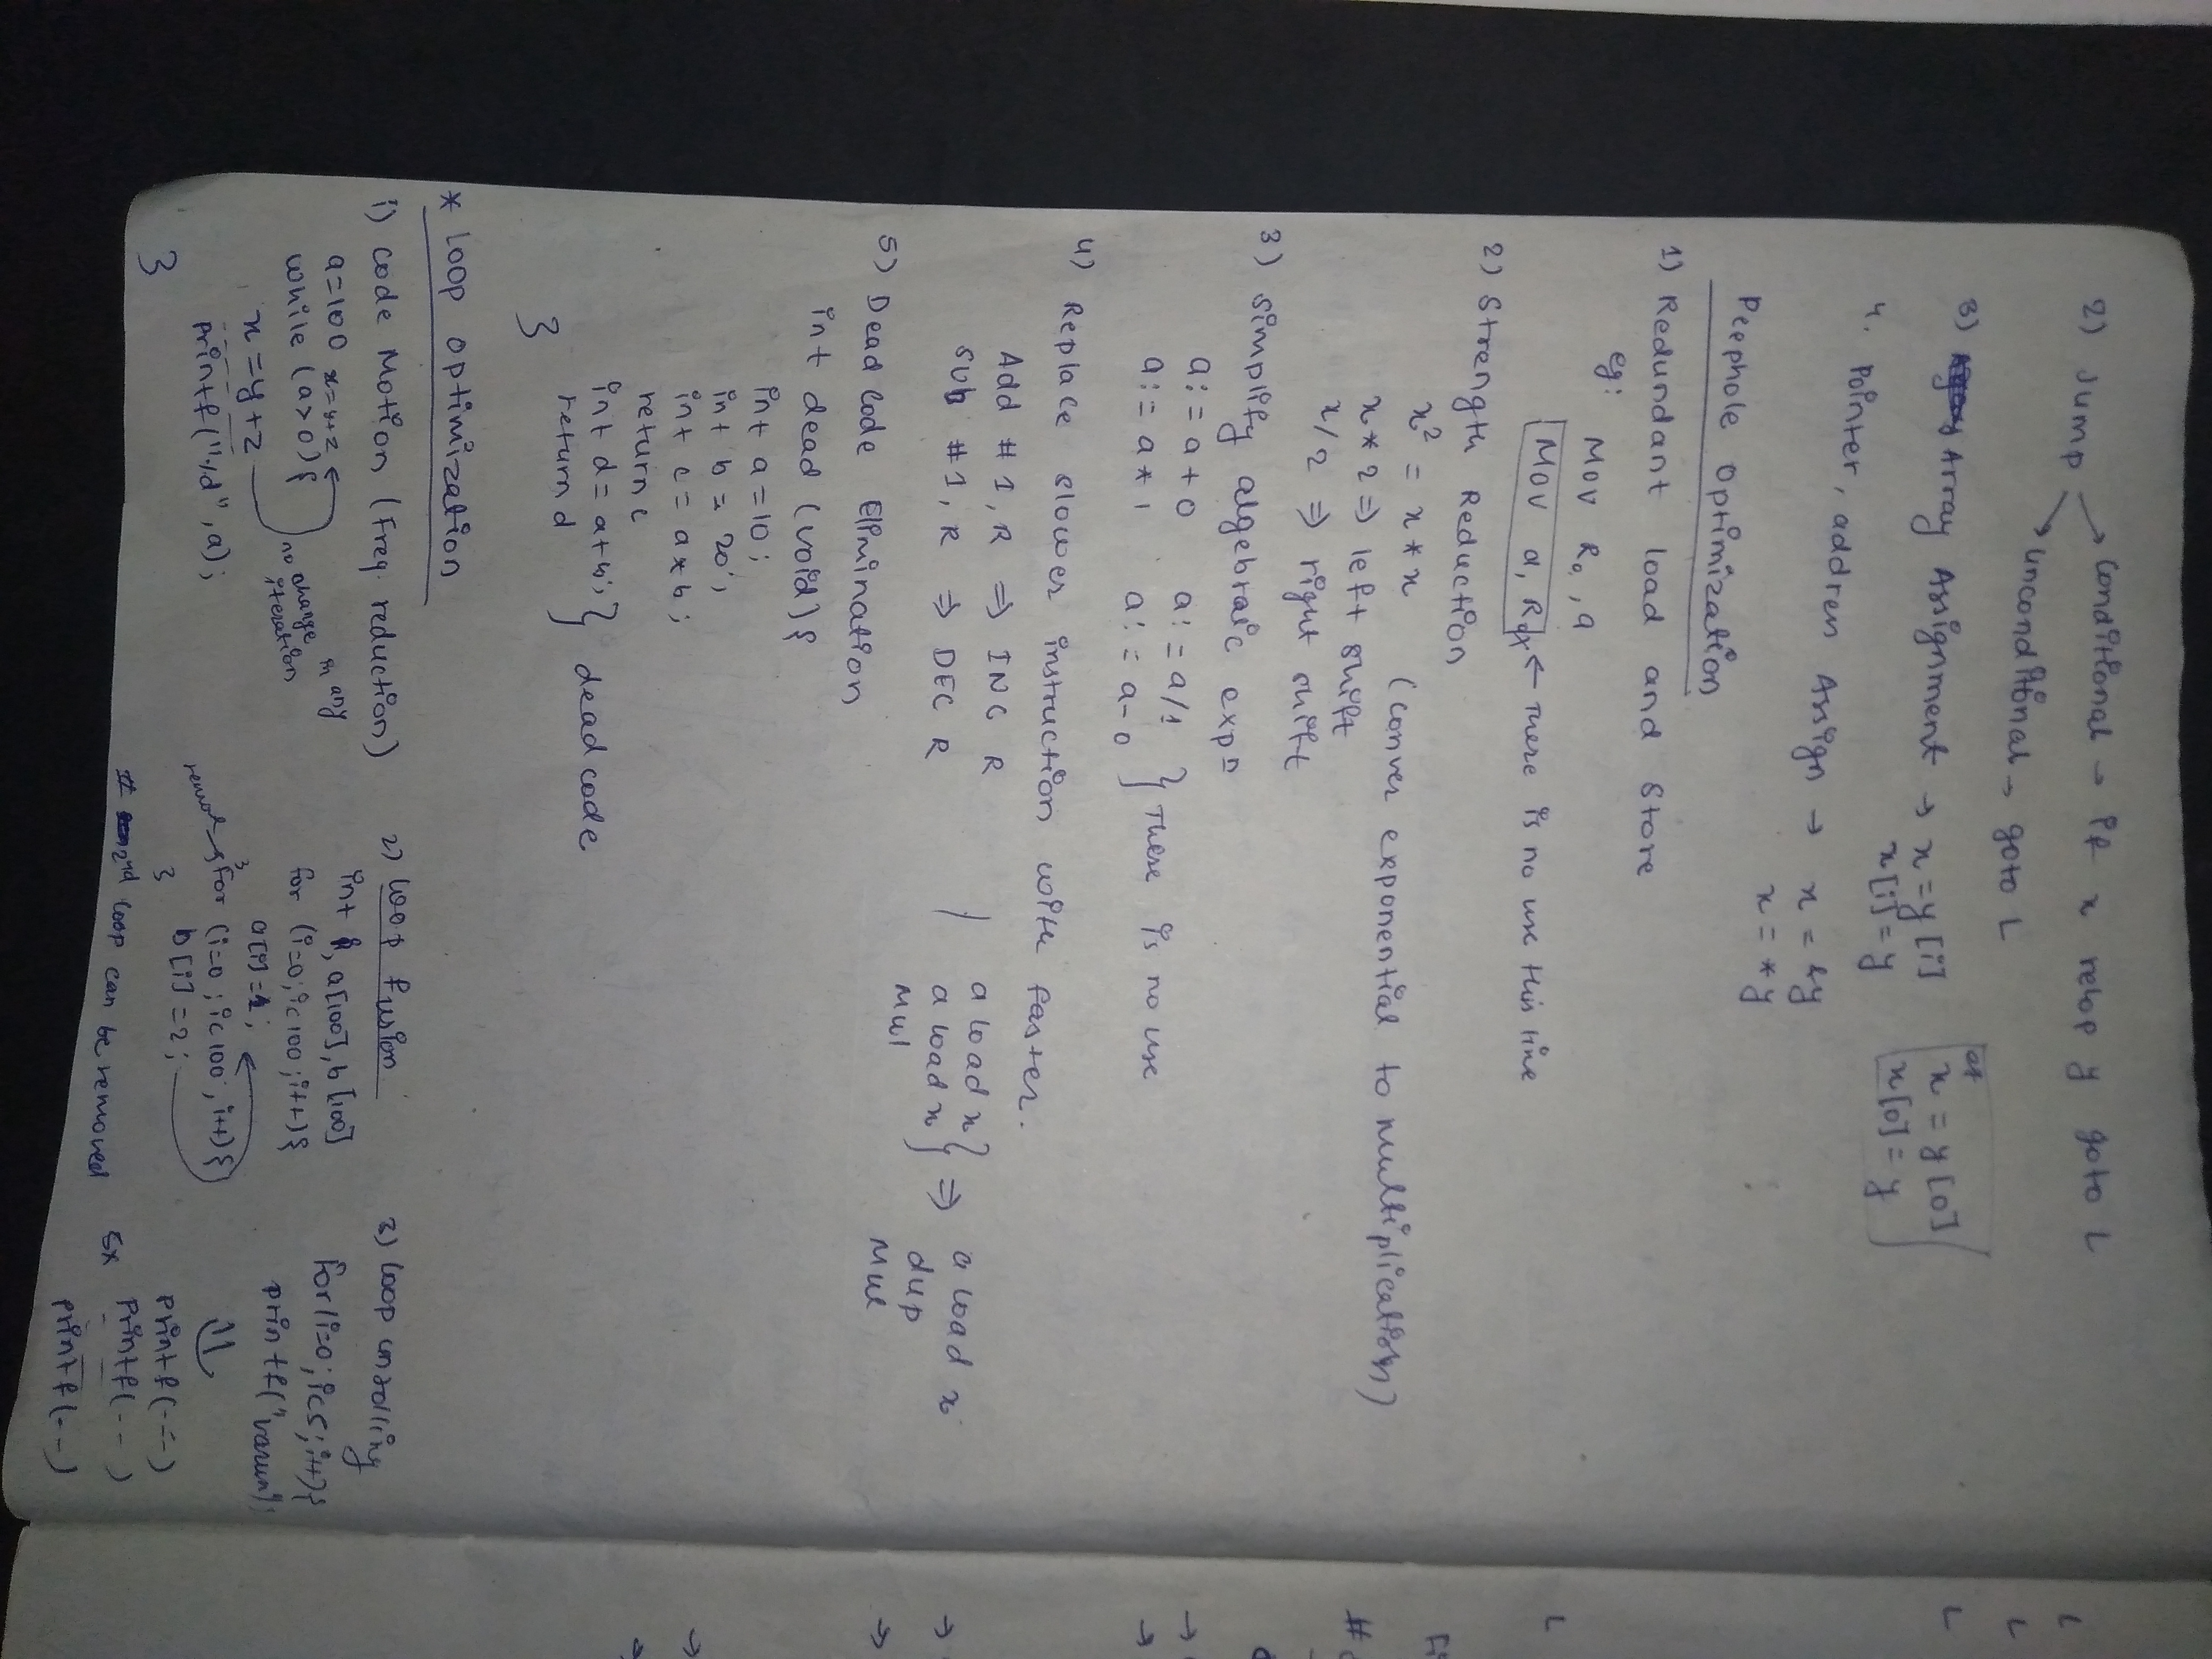 2) Jump → Conditional → if x relop y goto L
→ unconditional → goto L
3) Array Assignment → x = y[i]
x[i] = y
x = y[0]
x[0] = y
4. Pointer, address Assign → x = &y
x = *y
Peephole Optimization
1) Redundant load and Store
eg: MOV R0, a
MOV a, R0 ← There is no use this line
2) Strength Reduction
x² = x * x (conver exponential to multiplication)
x * 2 ⇒ left shift
x/2 ⇒ right shift
3) simplify algebraic expn
a := a + 0 a := a/1 } There is no use
a := a * 1 a := a - 0
4) Replace slower instruction with faster.
Add #1, R ⇒ INC R
Sub #1, R ⇒ DEC R
a load x } ⇒ a load x
a load x dup
Mul Mul
5) Dead Code Elimination
int dead (void) {
int a = 10;
int b = 20;
int c = a * b;
return c
int d = a + b; } dead code
return d
}
* Loop Optimization
1) Code Motion (Freq. reduction)
a = 100 x = y + z
while (a > 0) {
x = y + z
no change in any iteration
printf ("%d", a);
}
2) Loop fusion
int i, a[100], b[100]
for (i=0; i<100; i++) {
a[i] = 1;
}
for (i=0; i<100; i++) {
b[i] = 2;
}
# 2nd loop can be removed
3) Loop unrolling
for (i=0; i<5; i++) {
printf("varun");
⇓
5x printf(---)
printf(---)
printf(---)